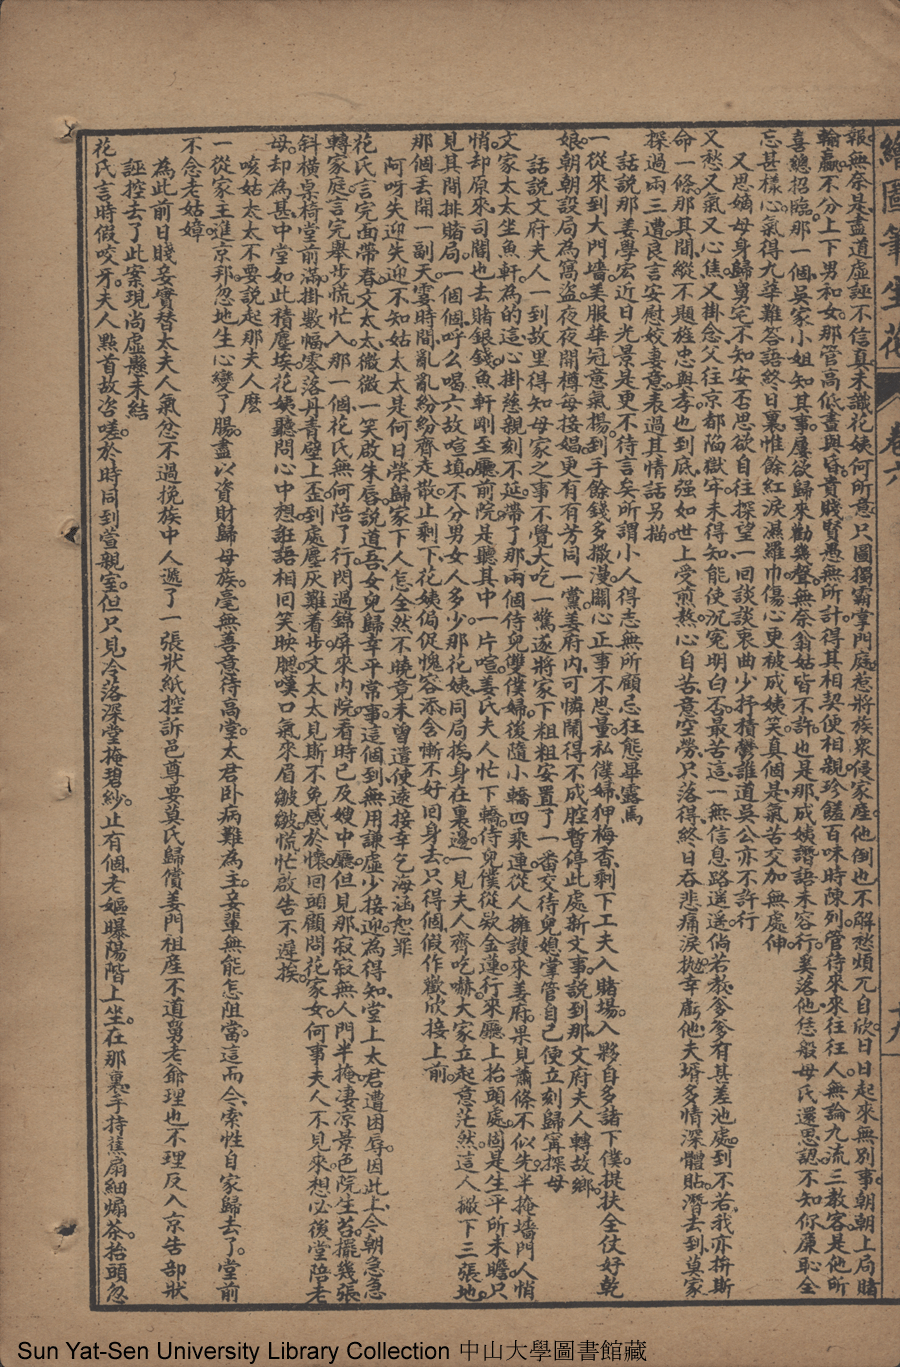 繪圖筆生花
卷六
十九
報無奈是盡道虛誣不信真未識花姨何所意只圖獨霸掌門庭惹將族衆侵家產他倒也不解愁煩兀自欣日日起來無別事朝朝上局賭
輸贏不分上下男和女那管高低晝與昏貴賤賢愚無所計得其相契便相親珍饈百味時陳列管待來來往往人無論九流三教客是他所
喜總招臨那一個吳家小姐知其事屢欲歸來勸幾聲無奈翁姑皆不許也是那成姨譖語未容行奚落他恁般母氏還思認不知你廉恥全
忘甚樣心氣得九華難答語終日裏惟餘紅淚濕羅巾傷心更被成姨笑真個是氣苦交加無處伸
又思嫡母身歸舅宅不知安否思欲自往探望一回談談衷曲少抒積鬱誰道吳公亦不許行
又愁又氣又心焦又掛念父往京都陷獄牢未得知能使沉寃明白否最苦這一無信息路遥遥倘若教爹爹有甚差池處到不若我亦拚斯
命一條那其間縱不題旌忠與孝也到底强如世上受煎熬心自苦意空勞只落得終日吞悲痛淚拋幸虧他夫壻多情深體貼潛去到莫家
探過兩三遭良言安慰姣妻意表過其情話另描
話說那姜學宏近日光景是更不待言矣所謂小人得志無所顧忌狂態畢露焉
一從來到大門墻美服華冠意氣揚到手餘錢多撒漫關心正事不思量私僕婦狎梅香剩下工夫入賭場入夥自多諸下僕提扶全仗好乾
娘朝朝設局為窩盜夜夜開樽每接娼更有有芳同一黨姜府內可憐鬧得不成腔暫停此處新文事說到那文府夫人轉故鄉
話說文府夫人一到故里得知母家之事不覺大吃一驚遂將家下粗粗安置了一番交待兒媳掌管自己便立刻歸甯探母
文家太太坐魚軒為的這心掛慈親刻不延帶了那兩個侍兒雙僕婦後隨小轎四乘連從人擁護來姜府果見蕭條不似先半掩墻門人悄
悄却原來司閽也去賭銀錢魚軒剛至廳前院是聽其中一片喧姜氏夫人忙下轎侍兒僕從欵金蓮行來廳上抬頭處固是生平所未瞻只
見其間排賭局一個個呼么喝六故喧填不分男女人多少那花姨同局挨身在裏邊一見夫人齊吃嚇大家立起意茫然這人撇下三張地
那個丢開一副天霎時間亂亂紛紛齊走散止剩下花姨侷促愧容添含慚不好回身去只得個假作歡欣接上前
阿呀失迎失迎不知姑太太是何日榮歸家下人怎全然不曉竟未曾遣使遠接幸乞海涵恕罪
花氏言完面帶春文太太微微一笑啟朱唇說道吾女兒歸幸平常事這個到無用謙虛少接迎為得知堂上太君遭困辱因此上今朝急急
轉家庭言完舉步慌忙入那一個花氏無何陪了行閃過錦屏來內院看時已及嫂中廳但見那寂寂無人門半掩凄凉景色院生苔擺幾張
斜横桌椅堂前滿掛數幅零落丹青壁上歪到處塵灰難着步文太太見斯不免感於懷回頭顧問花家女何事夫人不見來想必後堂陪老
母却為甚中堂如此積塵埃花姨聽問心中想誑語相回笑映腮嘆口氣來眉皺皺慌忙啟告不遲挨
唆姑太太不要說起那夫人麽
一從家主離京邦忽地生心變了腸盡以資財歸母族毫無善意待高堂太君卧病難為主妾輩無能怎阻當這而今索性自家歸去了堂前
不念老姑嫜
為此前日賤妾實替太夫人氣忿不過挽族中人遞了一張狀紙控訴邑尊要莫氏歸償姜門祖產不道舅老爺理也不理反入京告部狀
誣控去了此案現尚虛懸未結
花氏言時假咬牙夫人點首故咨嗟於時同到萱親室但只見冷落深堂掩碧紗止有個老嫗曝陽階上坐在那裏手持蕉扇細煽茶抬頭忽
Sun Yat-Sen University Library Collection 中山大學圖書館藏